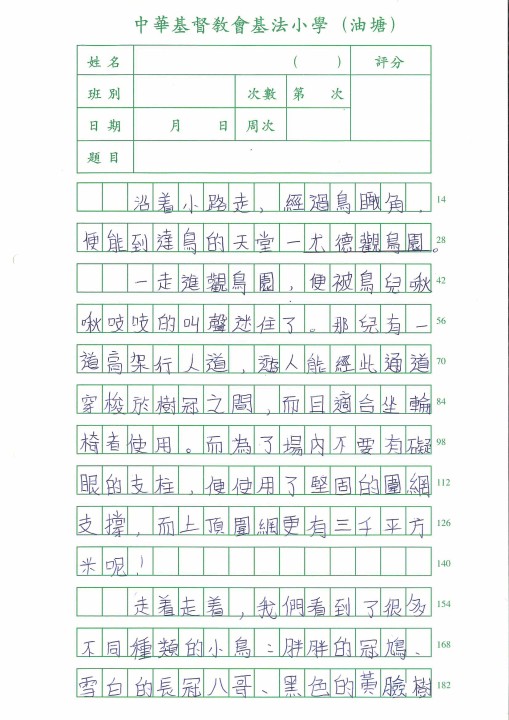 中華基督教會基法小學（油塘）
姓名 （ ） 評分
班別 次數 第 次
日期 月 日 周次
題目
沿着小路走，經過鳥瞰角， 14
便能到達鳥的天堂—尤德觀鳥園。 28
一走進觀鳥園，便被鳥兒啾 42
啾吱吱的叫聲迷住了。那兒有一 56
道高架行人道，遊人能經此通道 70
穿梭於樹冠之間，而且適合坐輪 84
椅者使用。而為了場內不要有礙 98
眼的支柱，便使用了堅固的圍網 112
支撐，而上頂圍網更有三千平方 126
米呢！ 140
走着走着，我們看到了很多 154
不同種類的小鳥：胖胖的冠鳩、 168
雪白的長冠八哥、黑色的黃臉樹 182